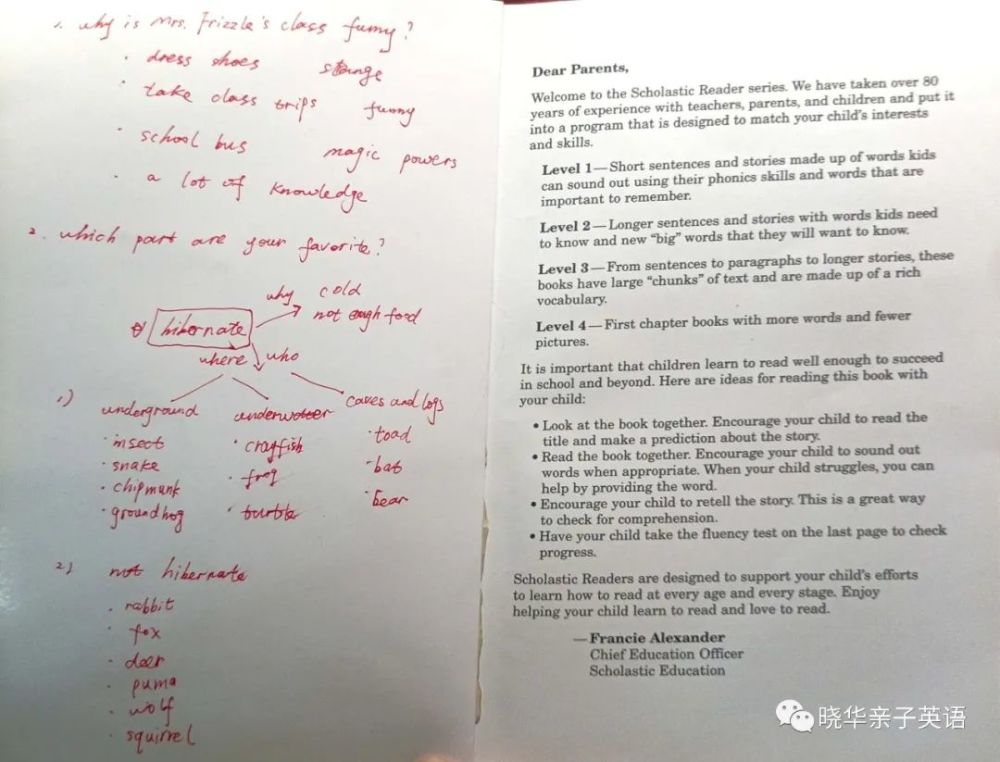 1. why is Mrs. Frizzle's class funny?
· dress shoes strange
· take class trips funny
· school bus magic powers
· a lot of knowledge
2. which part are your favorite?
why cold
hibernate not enough food
where who
1.) underground underwater caves and logs
· insect · crayfish · toad
· snake · frog · bat
· chipmunk · turtle · bear
· groundhog
2.) not hibernate
· rabbit
· fox
· deer
· puma
· wolf
· squirrel
Dear Parents,
Welcome to the Scholastic Reader series. We have taken over 80
years of experience with teachers, parents, and children and put it
into a program that is designed to match your child's interests
and skills.
Level 1—Short sentences and stories made up of words kids
can sound out using their phonics skills and words that are
important to remember.
Level 2—Longer sentences and stories with words kids need
to know and new "big" words that they will want to know.
Level 3—From sentences to paragraphs to longer stories, these
books have large "chunks" of text and are made up of a rich
vocabulary.
Level 4—First chapter books with more words and fewer
pictures.
It is important that children learn to read well enough to succeed
in school and beyond. Here are ideas for reading this book with
your child:
• Look at the book together. Encourage your child to read the
title and make a prediction about the story.
• Read the book together. Encourage your child to sound out
words when appropriate. When your child struggles, you can
help by providing the word.
• Encourage your child to retell the story. This is a great way
to check for comprehension.
• Have your child take the fluency test on the last page to check
progress.
Scholastic Readers are designed to support your child's efforts
to learn how to read at every age and every stage. Enjoy
helping your child learn to read and love to read.
—Francie Alexander
Chief Education Officer
Scholastic Education
晓华亲子英语